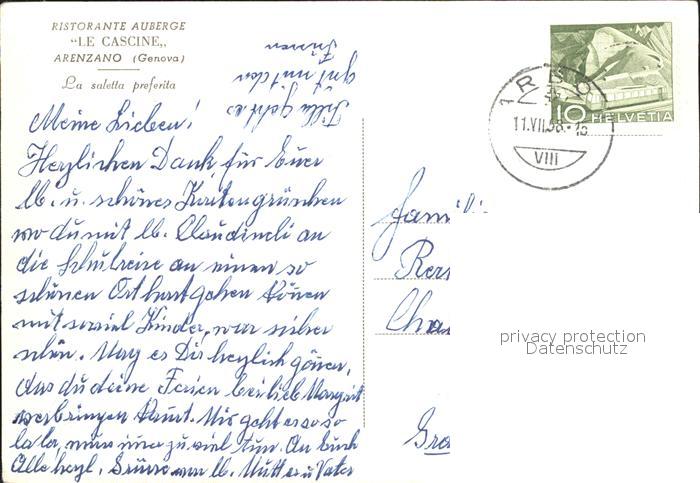 RISTORANTE AUBERGE
"LE CASCINE„
ARENZANO (Genova)
La saletta preferita
Meine Lieben!
Herzlichen Dank für Euer
lb. u. schönes Kartengrüsschen
wo du mit lb. Claudineli an
die Schulreise an einen so
schönen Ort hast gehen können
mit soviel Kinder, war sicher
schön. Mag es Dir herzlich gönen,
das du deine Ferien bei lieb Margrit
verbringen kannst. Mir geht es so so
la la, nur immer zu viel tun. An Euch
Alle herzl. Grüsse von lb. Mutter u Vater
Tilla geht es
gut mit den
HELVETIA
10
11.VII.58.-18
VIII
Fami
Chas
privacy protection
Datenschutz